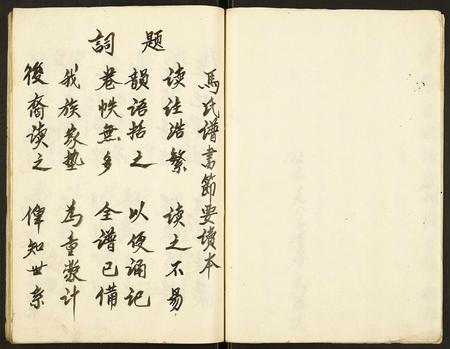 馬氏谱書節要讀本
題詞
读註浩繁 读之不易
韻語括之 以便诵记
卷帙無多 全谱已備
我族家塾 為童蒙計
後裔读之 俾知世系